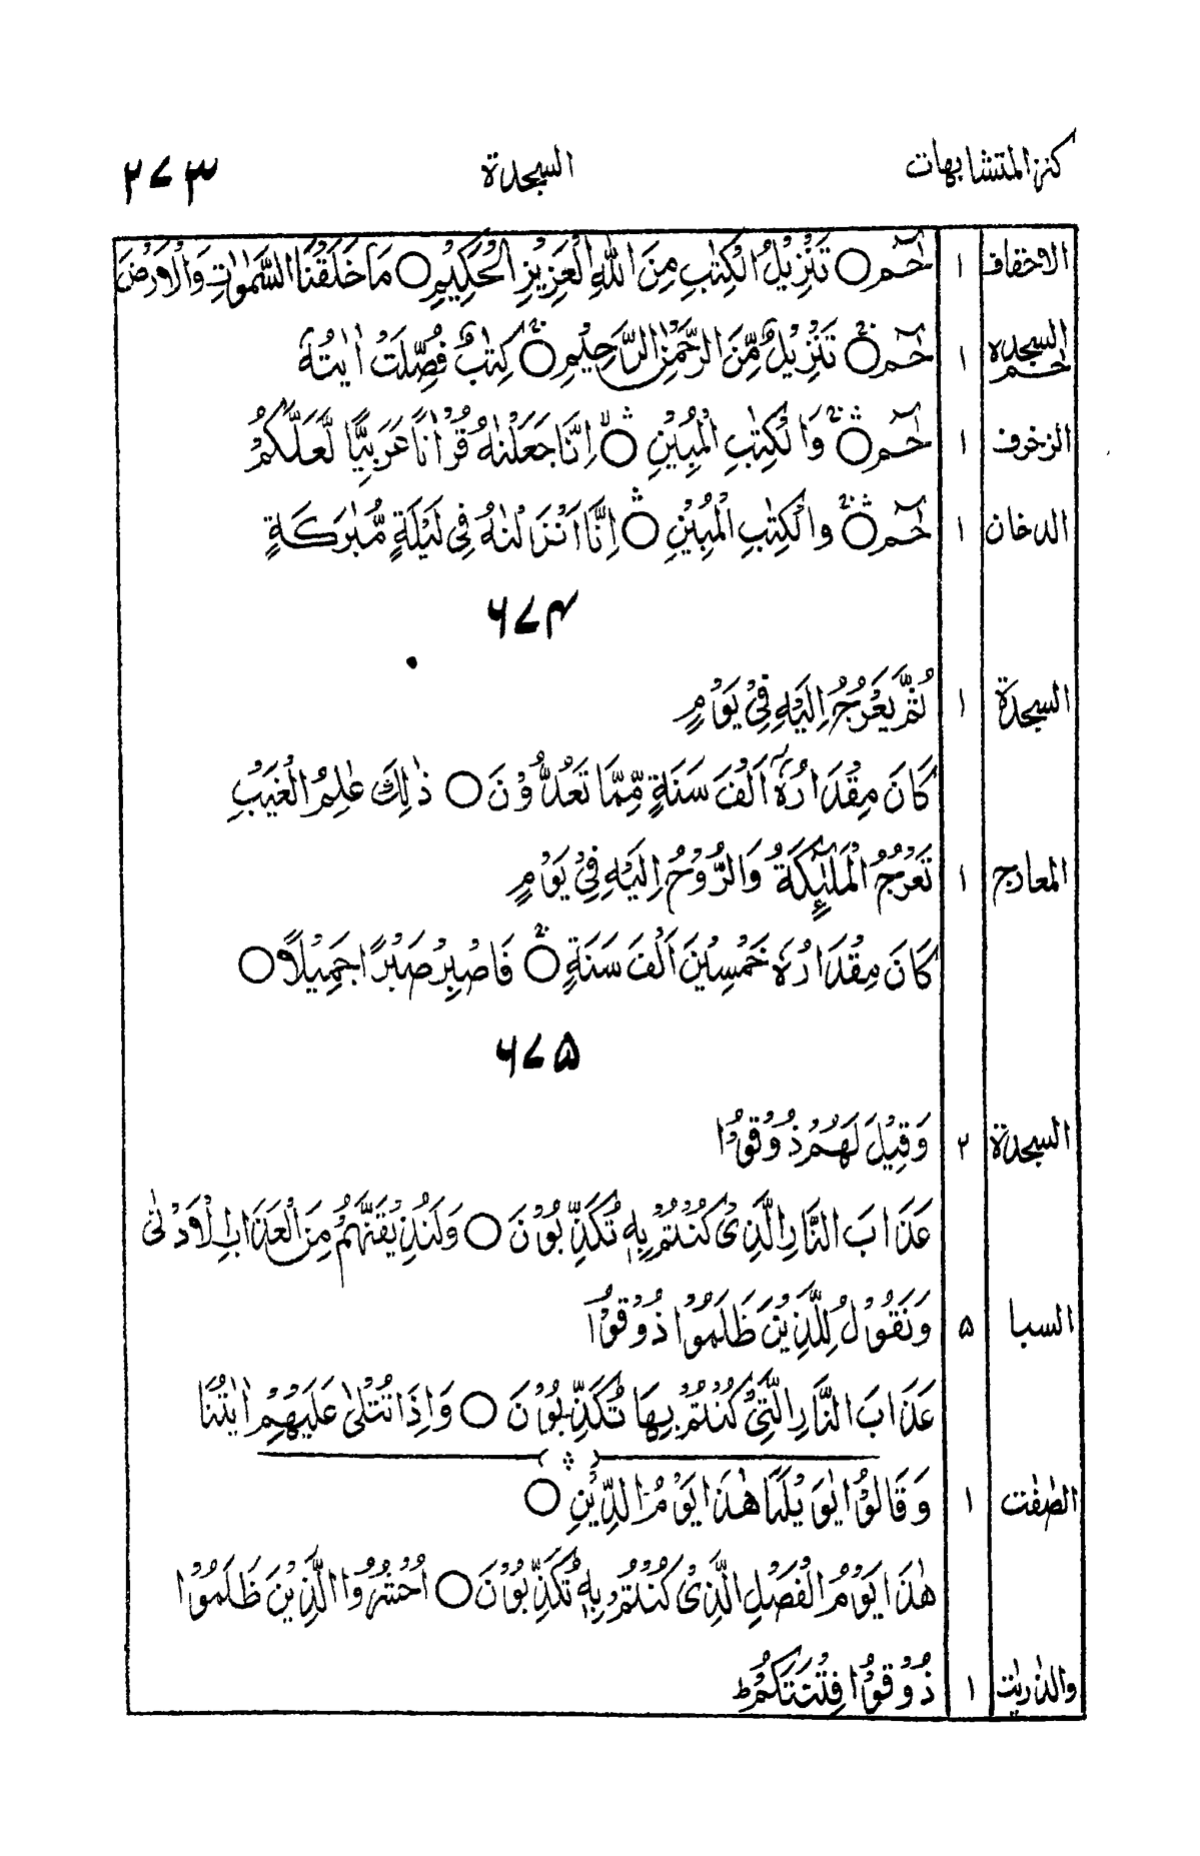 كنز المتشابهات السجدة ۲۷۳
الاحقاف ۱ حٰمٓ ○ تَنْزِيْلُ الْكِتٰبِ مِنَ اللّٰهِ الْعَزِيْزِ الْحَكِيْمِ ○ مَا خَلَقْنَا السَّمٰوٰتِ وَالْاَرْضَ
السجدہ حٰم ۱ حٰمٓ ○ تَنْزِيْلٌ مِّنَ الرَّحْمٰنِ الرَّحِيْمِ ○ كِتٰبٌ فُصِّلَتْ اٰيٰتُهٗ
الزخرف ۱ حٰمٓ ○ وَالْكِتٰبِ الْمُبِيْنِ ○ اِنَّا جَعَلْنٰهُ قُرْاٰنًا عَرَبِيًّا لَّعَلَّكُمْ
الدخان ۱ حٰمٓ ○ وَالْكِتٰبِ الْمُبِيْنِ ○ اِنَّا اَنْزَلْنٰهُ فِيْ لَيْلَةٍ مُّبٰرَكَةٍ
۶۷۴
السجدة ۱ ثُمَّ يَعْرُجُ اِلَيْهِ فِيْ يَوْمٍ
كَانَ مِقْدَارُهٗٓ اَلْفَ سَنَةٍ مِّمَّا تَعُدُّوْنَ ○ ذٰلِكَ عٰلِمُ الْغَيْبِ
المعارج ۱ تَعْرُجُ الْمَلٰٓئِكَةُ وَالرُّوْحُ اِلَيْهِ فِيْ يَوْمٍ
كَانَ مِقْدَارُهٗ خَمْسِيْنَ اَلْفَ سَنَةٍ ○ فَاصْبِرْ صَبْرًا جَمِيْلًا ○
۶۷۵
السجدة ۲ وَقِيْلَ لَهُمْ ذُوْقُوْا
عَذَابَ النَّارِ الَّذِيْ كُنْتُمْ بِهٖ تُكَذِّبُوْنَ ○ وَلَنُذِيْقَنَّهُمْ مِنَ الْعَذَابِ الْاَدْنٰى
السبا ۵ وَنَقُوْلُ لِلَّذِيْنَ ظَلَمُوْا ذُوْقُوْا
عَذَابَ النَّارِ الَّتِيْ كُنْتُمْ بِهَا تُكَذِّبُوْنَ ○ وَاِذَا تُتْلٰى عَلَيْهِمْ اٰيٰتُنَا
الصٰفٰت ۱ وَقَالُوْا يٰوَيْلَنَا هٰذَا يَوْمُ الدِّيْنِ ○
هٰذَا يَوْمُ الْفَصْلِ الَّذِيْ كُنْتُمْ بِهٖ تُكَذِّبُوْنَ ○ اُحْشُرُوا الَّذِيْنَ ظَلَمُوْا
والذٰريٰت ۱ ذُوْقُوْا فِتْنَتَكُمْ ط